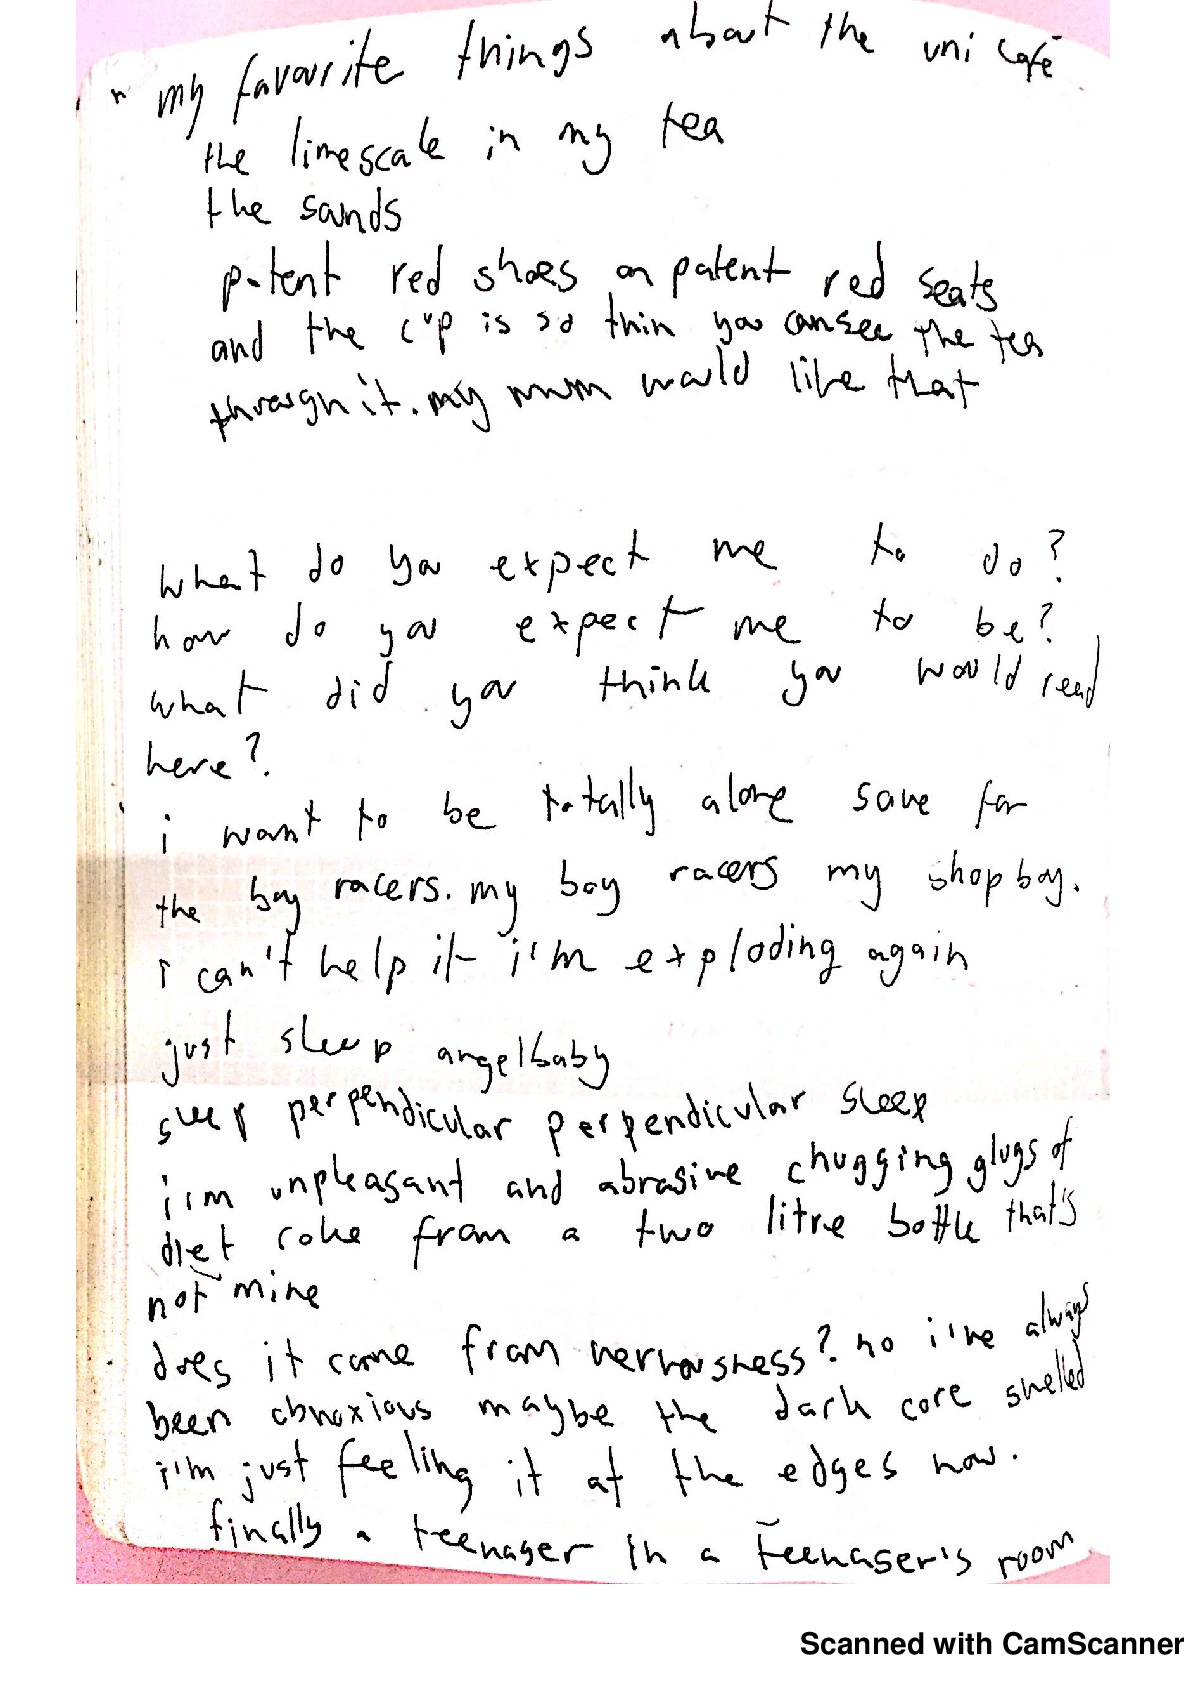 my favourite things about the uni café
the limescale in my tea
the sands
patent red shoes on patent red seats
and the cup is so thin you can see the tea
through it. my mum would like that
what do you expect me to do?
how do you expect me to be?
what did you think you would read
here?
i want to be totally alone save for
the boy racers. my boy racers my shop boy.
i can't help it i'm exploding again
just sleep angelbaby
sleep perpendicular perpendicular sleep
i'm unpleasant and abrasive chugging glugs of
diet coke from a two litre bottle that's
not mine
does it come from nervousness? no i've always
been obnoxious maybe the dark core swelled
i'm just feeling it at the edges now.
finally a teenager in a teenager's room
Scanned with CamScanner